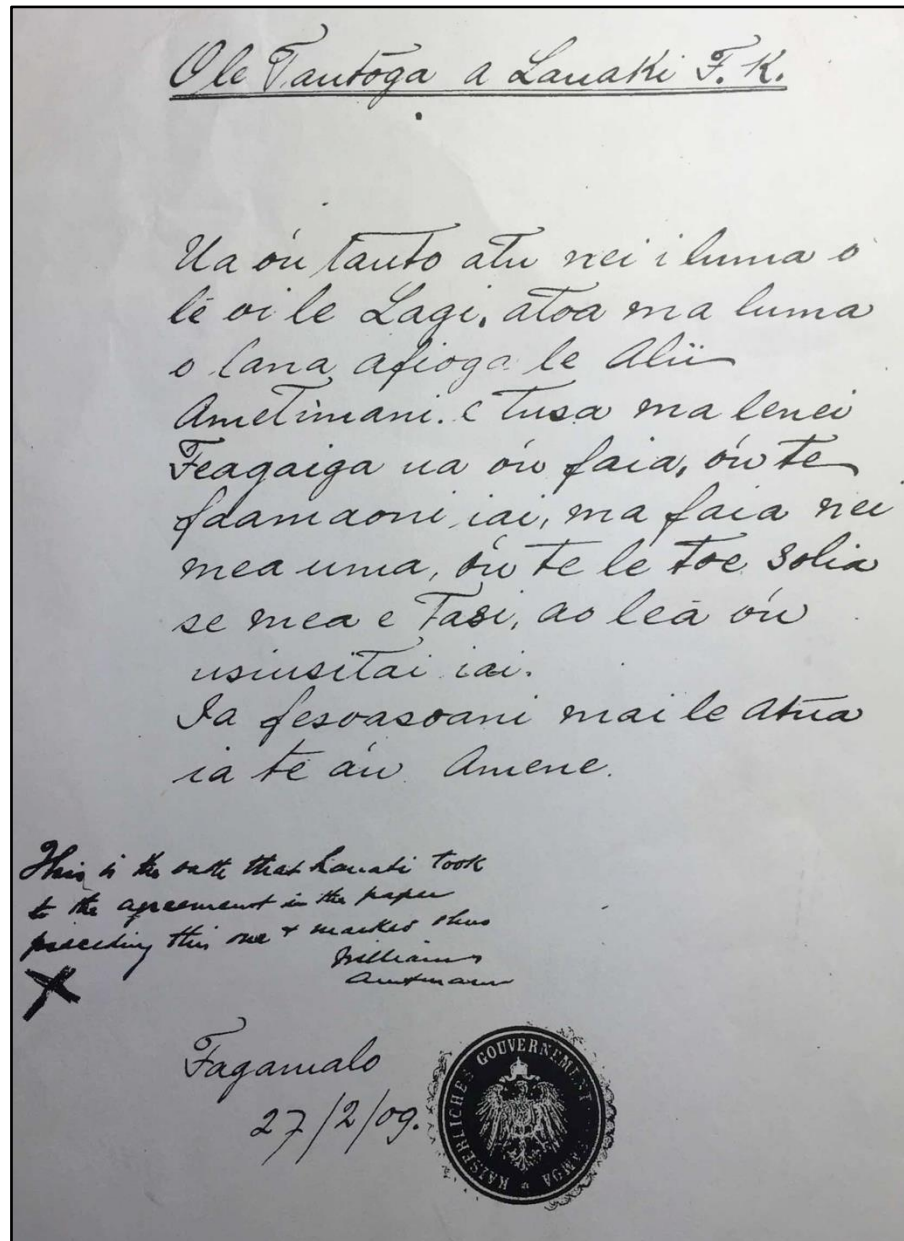 O le Tautōga a Lauaki F. K.
Ua óu tauto atu nei i luma o
lē oi le Lagi, atoa ma luma
o lana afioga le Alii
Ametimani. e tusa ma lenei
Feagaiga ua óu faia, óu te
faamaoni iai, ma faia nei
mea uma, óu te le toe solia
se mea e Tasi, ao leā óu
usiusitai iai.
Ia fesoasoani mai le Atua
ia te áu Amene.
This is the oath that Lauati took
to the agreement in the paper
preceding this one & marked thus
Williams
Amtmann
X
Fagamalo
27/2/09.
KAISERLICHES GOUVERNEMENT SAMOA